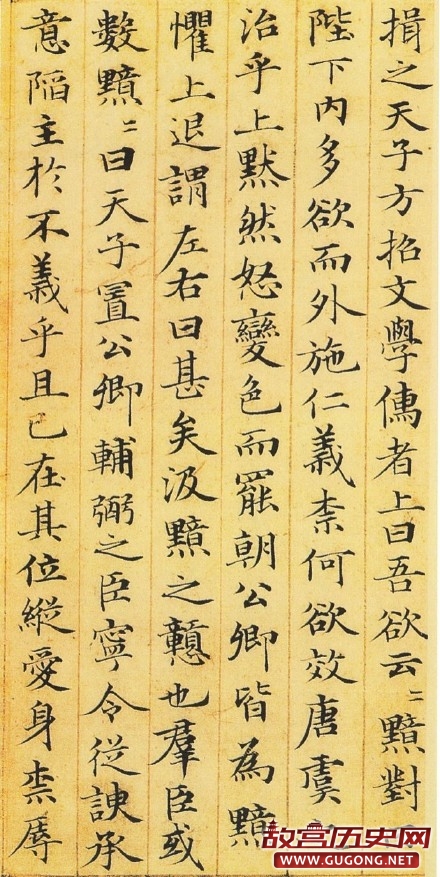 揖之天子方招文學儒者上曰吾欲云〻黯對
陛下內多欲而外施仁義柰何欲效唐虞
治乎上默然怒變色而罷朝公卿皆為黯
懼上退謂左右曰甚矣汲黯之戇也羣臣或
數黯〻曰天子置公卿輔弼之臣寧令從諛承
意陷主於不義乎且已在其位縱愛身柰辱
故宫历史网
WWW.GUGONG.NET